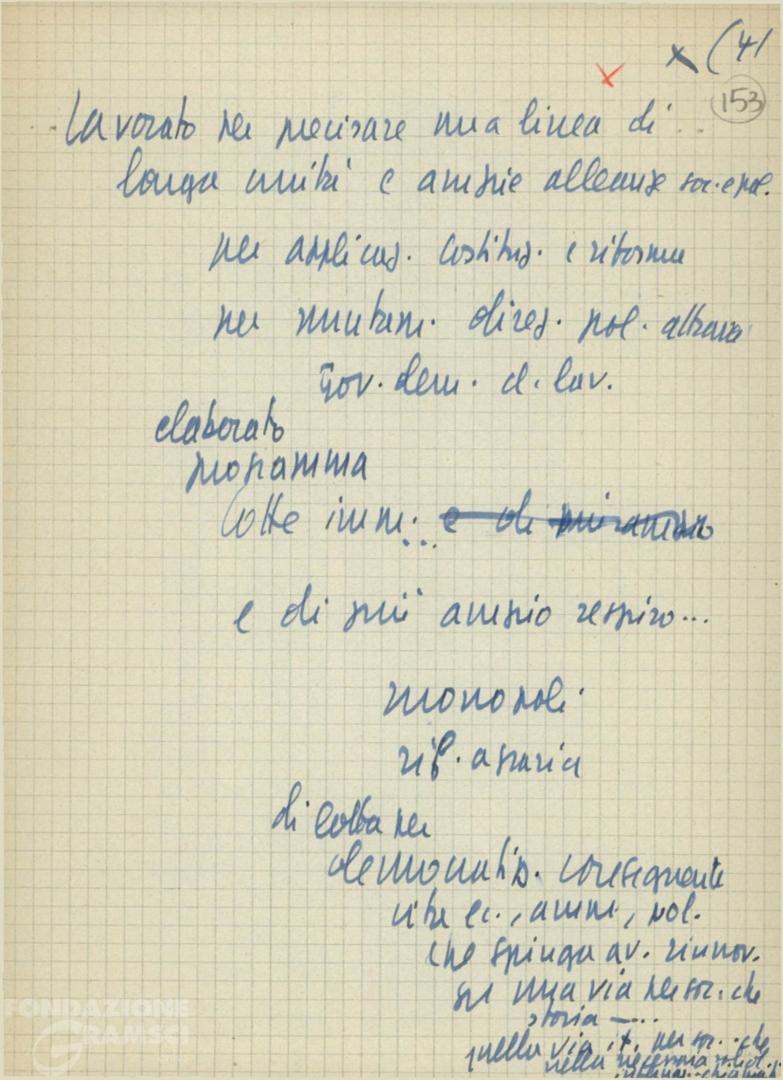 x (41
x 153
Lavorato per precisare una linea di
larga unità e ampie alleanze soc. e pol.
per applicaz. Costituz. e riforme
per mutam. direz. pol. attrav.
Gov. dem. d. lav.
elaborato
programma
lotte imm. ... e di
e di più ampio respiro...
monopoli
rif. agraria
di lotta per
democratiz. conseguente
vita ec., amm., pol.
che spinga av. rinnov.
su una via per soc. che
storia — ...
quella via it. per soc. che
nella necessaria
FONDAZIONE
GRAMSCI